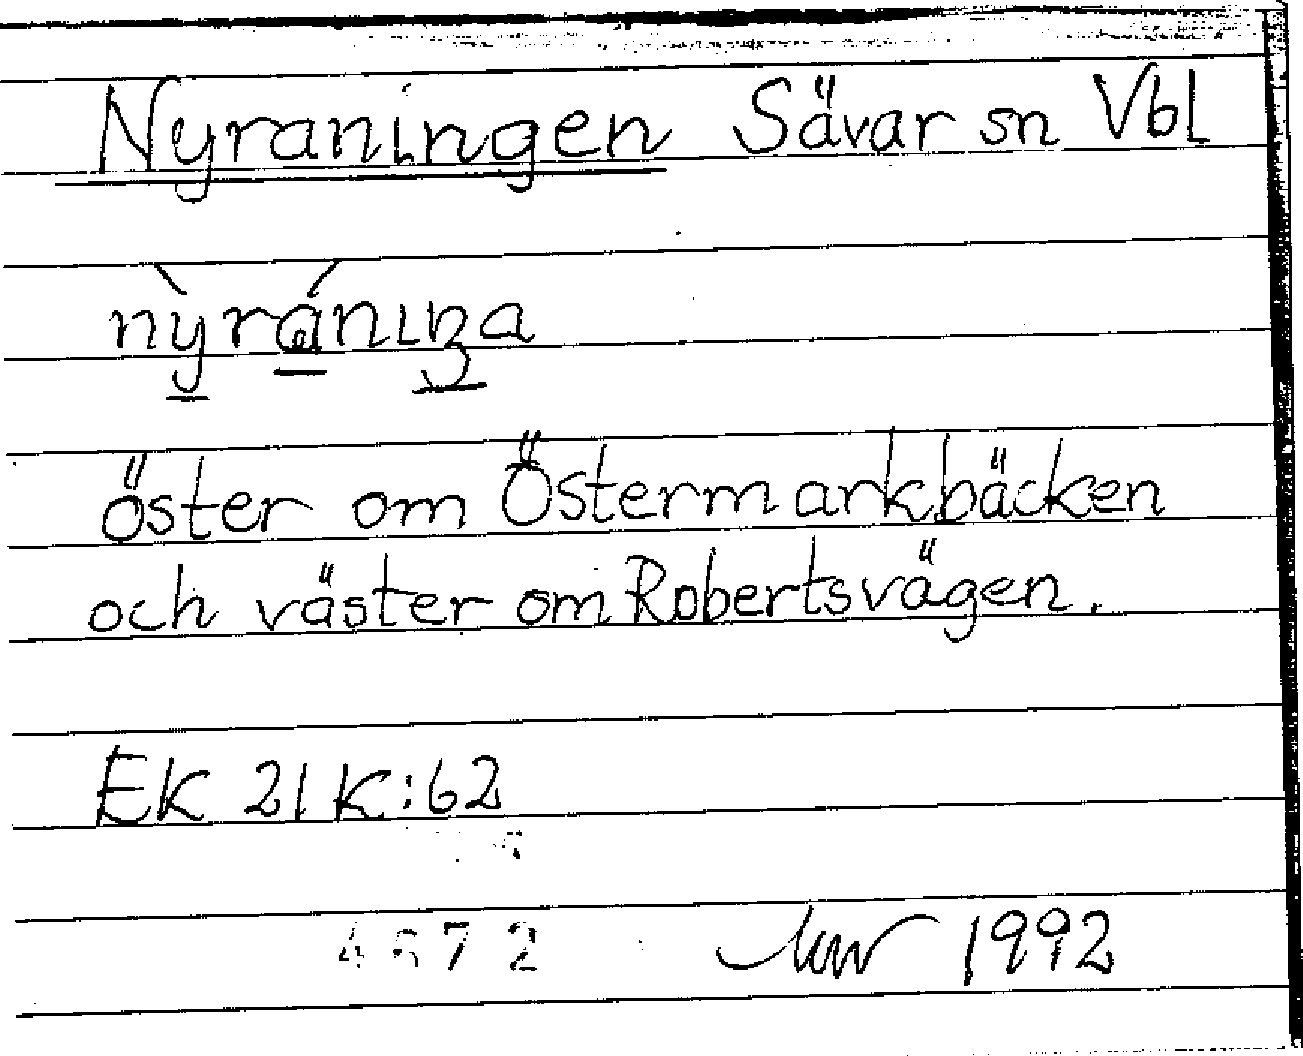 Nyraningen Sävar sn Vbl
nỳránıŋa
öster om Östermarkbäcken
och väster om Robertsvägen.
EK 21 K:62
1992